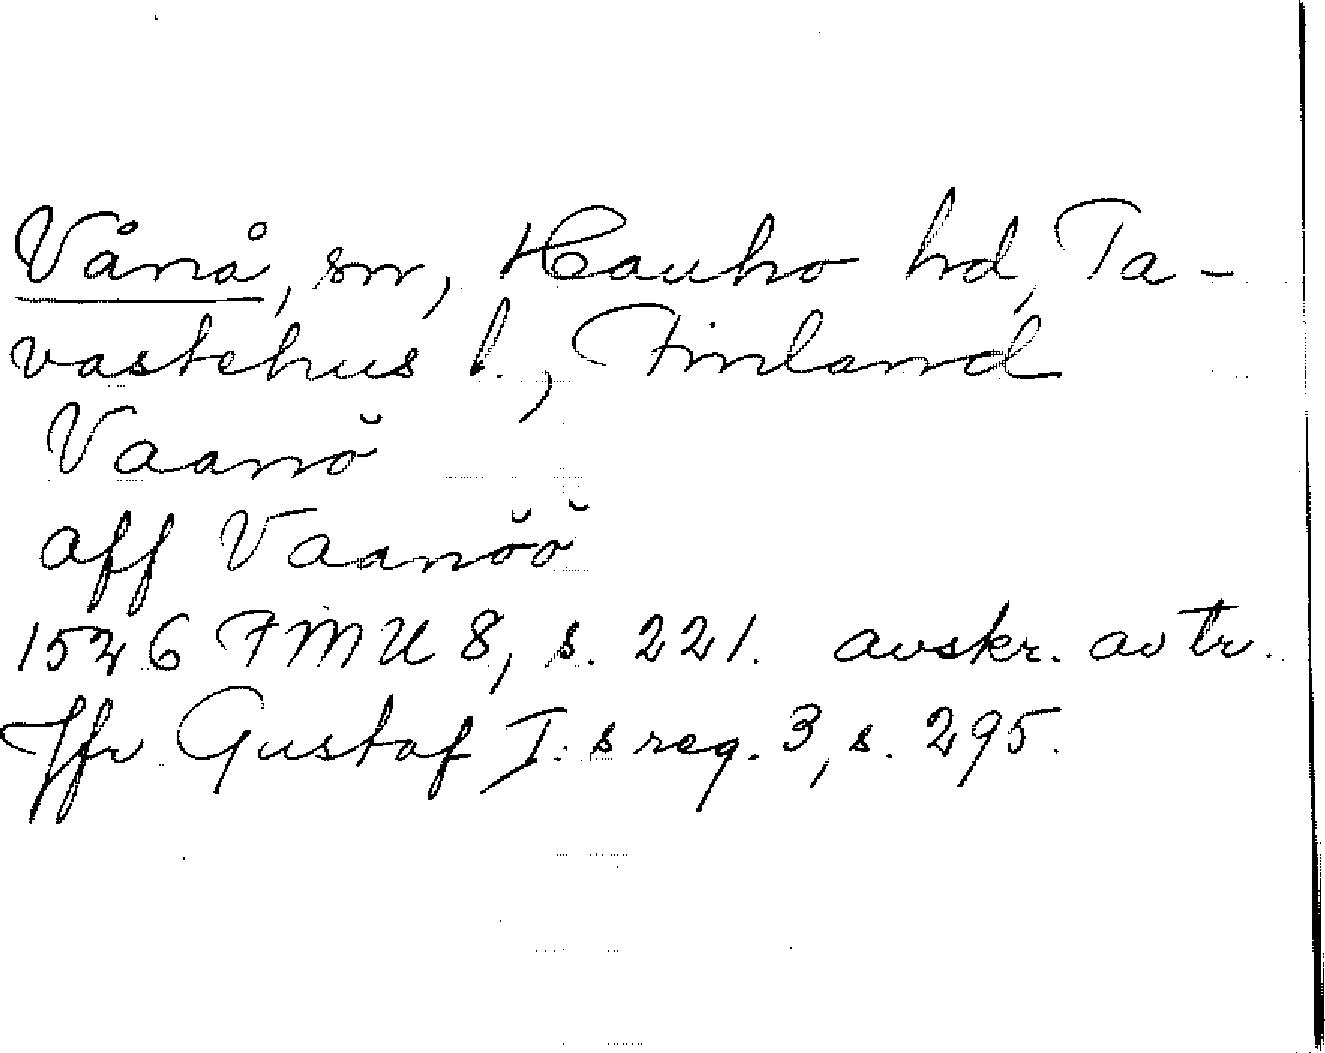 Vånå, sn, Hauho hd, Ta-
vastehus l., Finland
Vaanŏ
aff Vaanŏŏ
1526 FMU 8, s. 221. avskr. av tr.
Jfr Gustaf I:s reg. 3, s. 295.